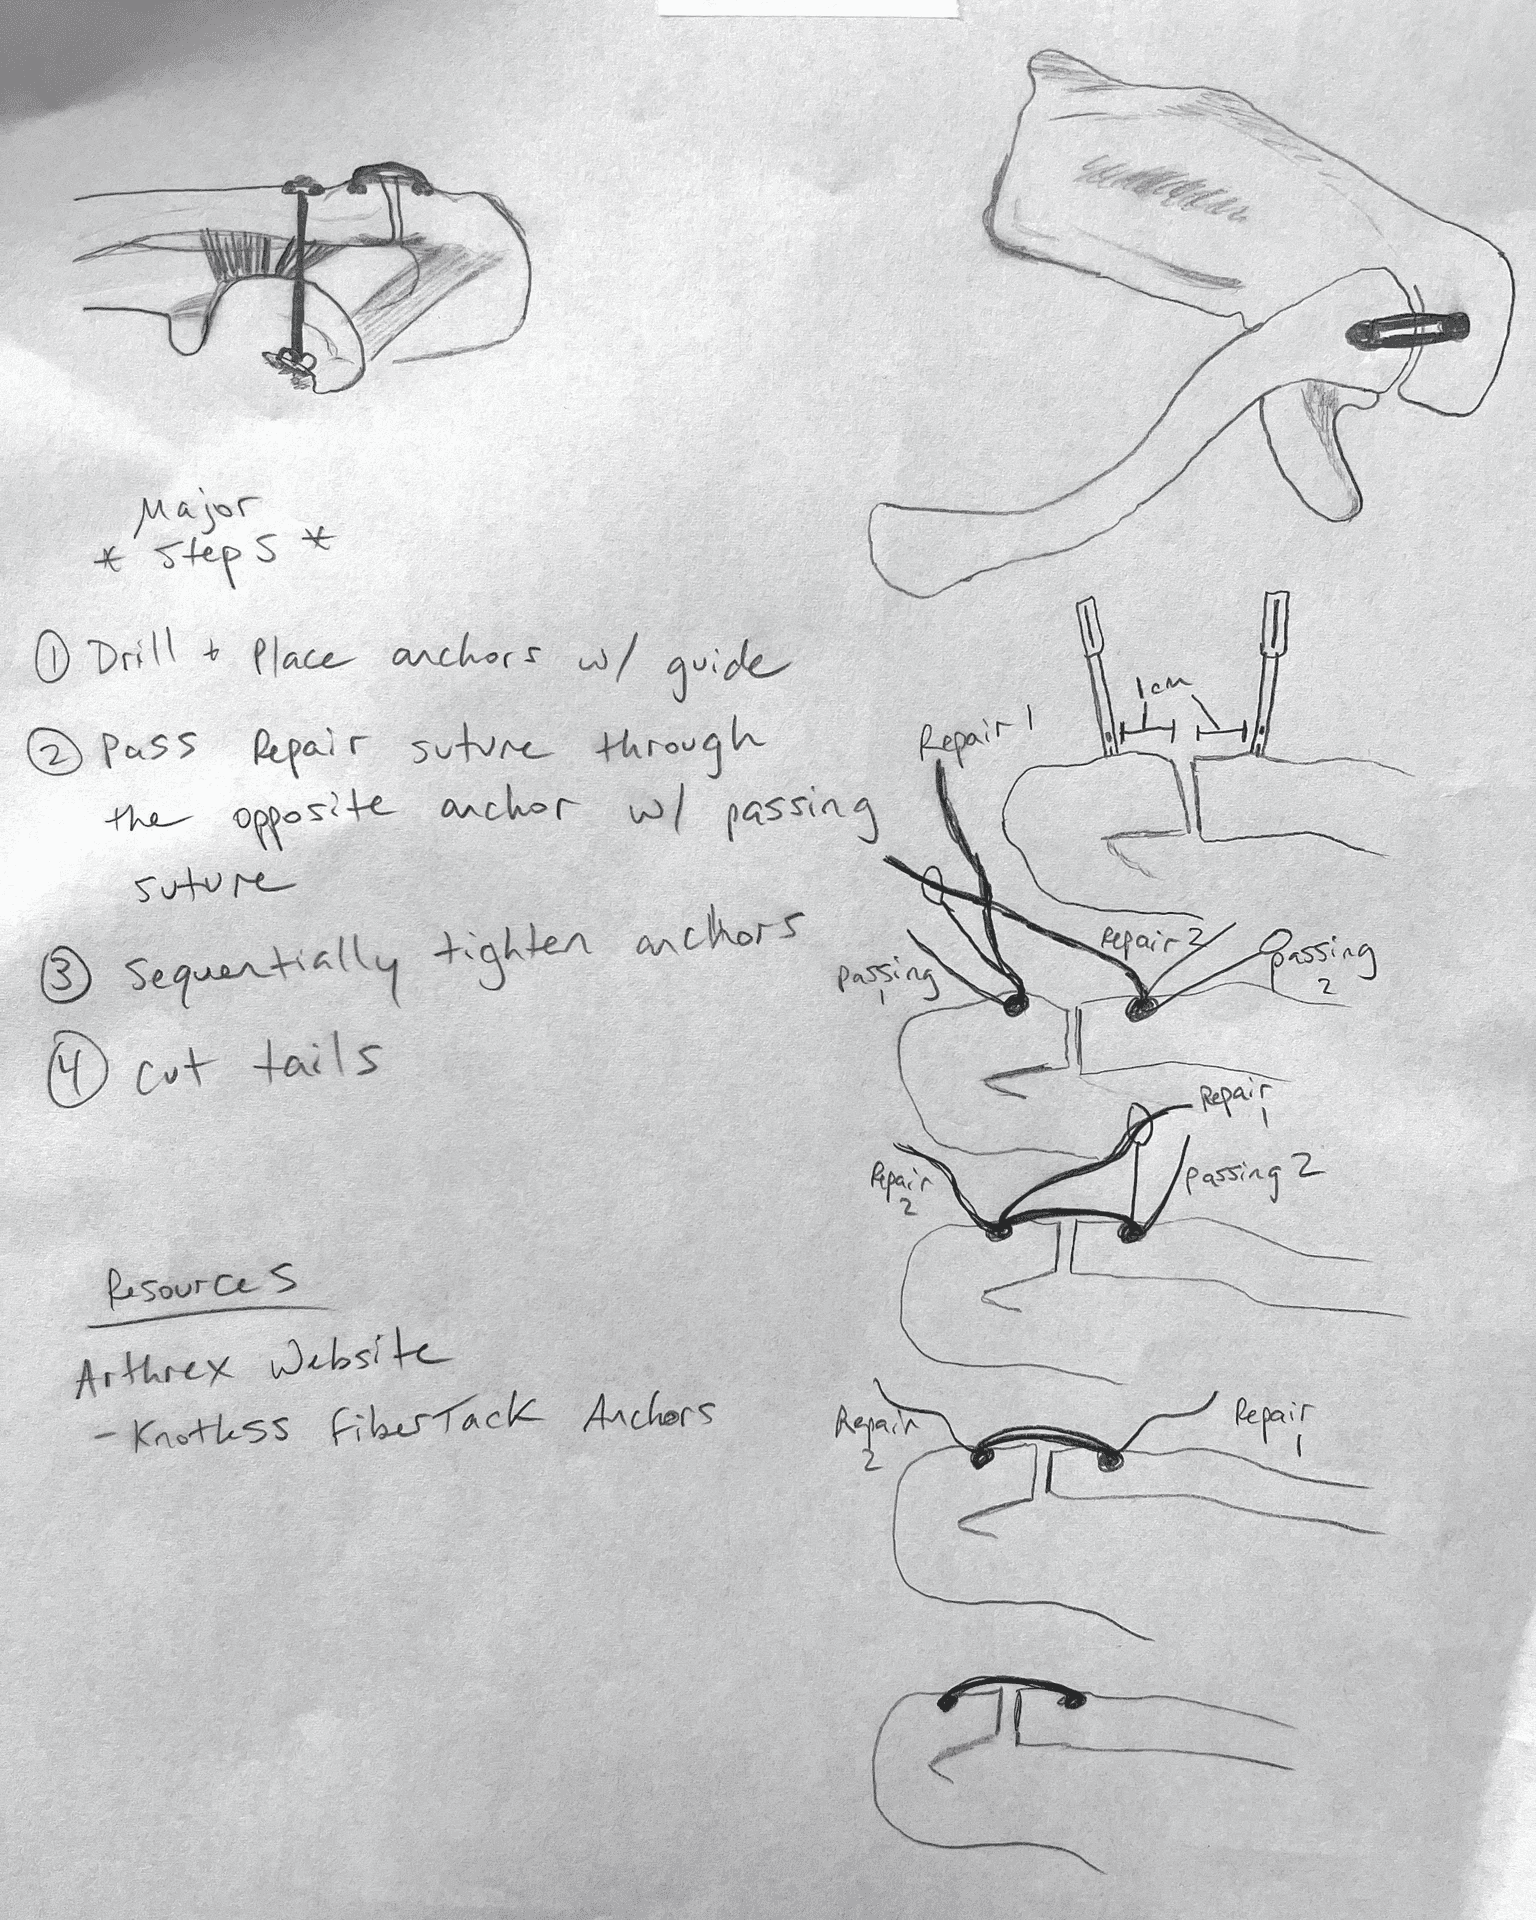 Major
* Steps *
① Drill + Place anchors w/ guide
② Pass Repair suture through
the opposite anchor w/ passing
suture
③ Sequentially tighten anchors
④ Cut tails
Resources
Arthrex Website
- Knotless FiberTack Anchors
1cm
Repair 1
Passing
1
Repair 2
Passing
2
Repair
1
Repair
2
Passing 2
Repair
2
Repair
1